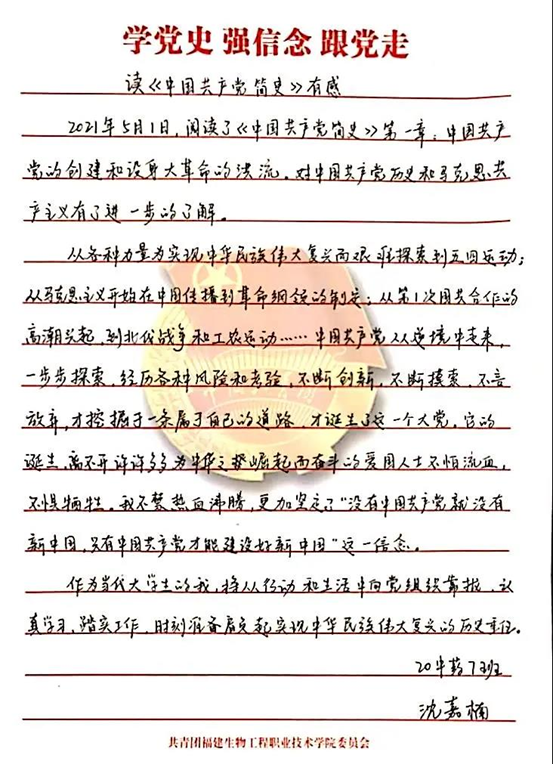 学党史 强信念 跟党走
读《中国共产党简史》有感
2021年5月1日,阅读了《中国共产党简史》第一章:中国共产
党的创建和投身大革命的洪流。对中国共产党历史和马克思共
产主义有了进一步的了解。
从各种力量为实现中华民族伟大复兴而艰难探索到五四运动;
从马克思主义开始在中国传播到革命纲领的制定;从第1次国共合作的
高潮兴起,到北伐战争和工农运动……中国共产党人从逆境中走来,
一步步探索,经历各种风险和考验,不断创新,不断摸索,不言
放弃,才挖掘于一条属于自己的道路,才诞生了这一个大党。它的
诞生,离不开许许多多为中华之崛起而奋斗的爱国人士不怕流血,
不惧牺牲。我不禁热血沸腾,更加坚定了“没有中国共产党就没有
新中国,只有中国共产党才能建设好新中国”这一信念。
作为当代大学生的我,将从行动和生活中向党组织靠拢,认
真学习,踏实工作,时刻准备肩负起实现中华民族伟大复兴的历史责任。
20中药7班
沈嘉楠
共青团福建生物工程职业技术学院委员会